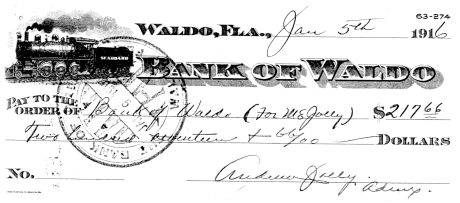 63-274
WALDO, FLA., Jan 5th 1916
SEABOARD
BANK OF WALDO
PAY TO THE
ORDER OF Bank of Waldo (For McJolly) $217.66
Two hundred seventeen + 66/00 DOLLARS
No. Andrew Jolly
Admx.